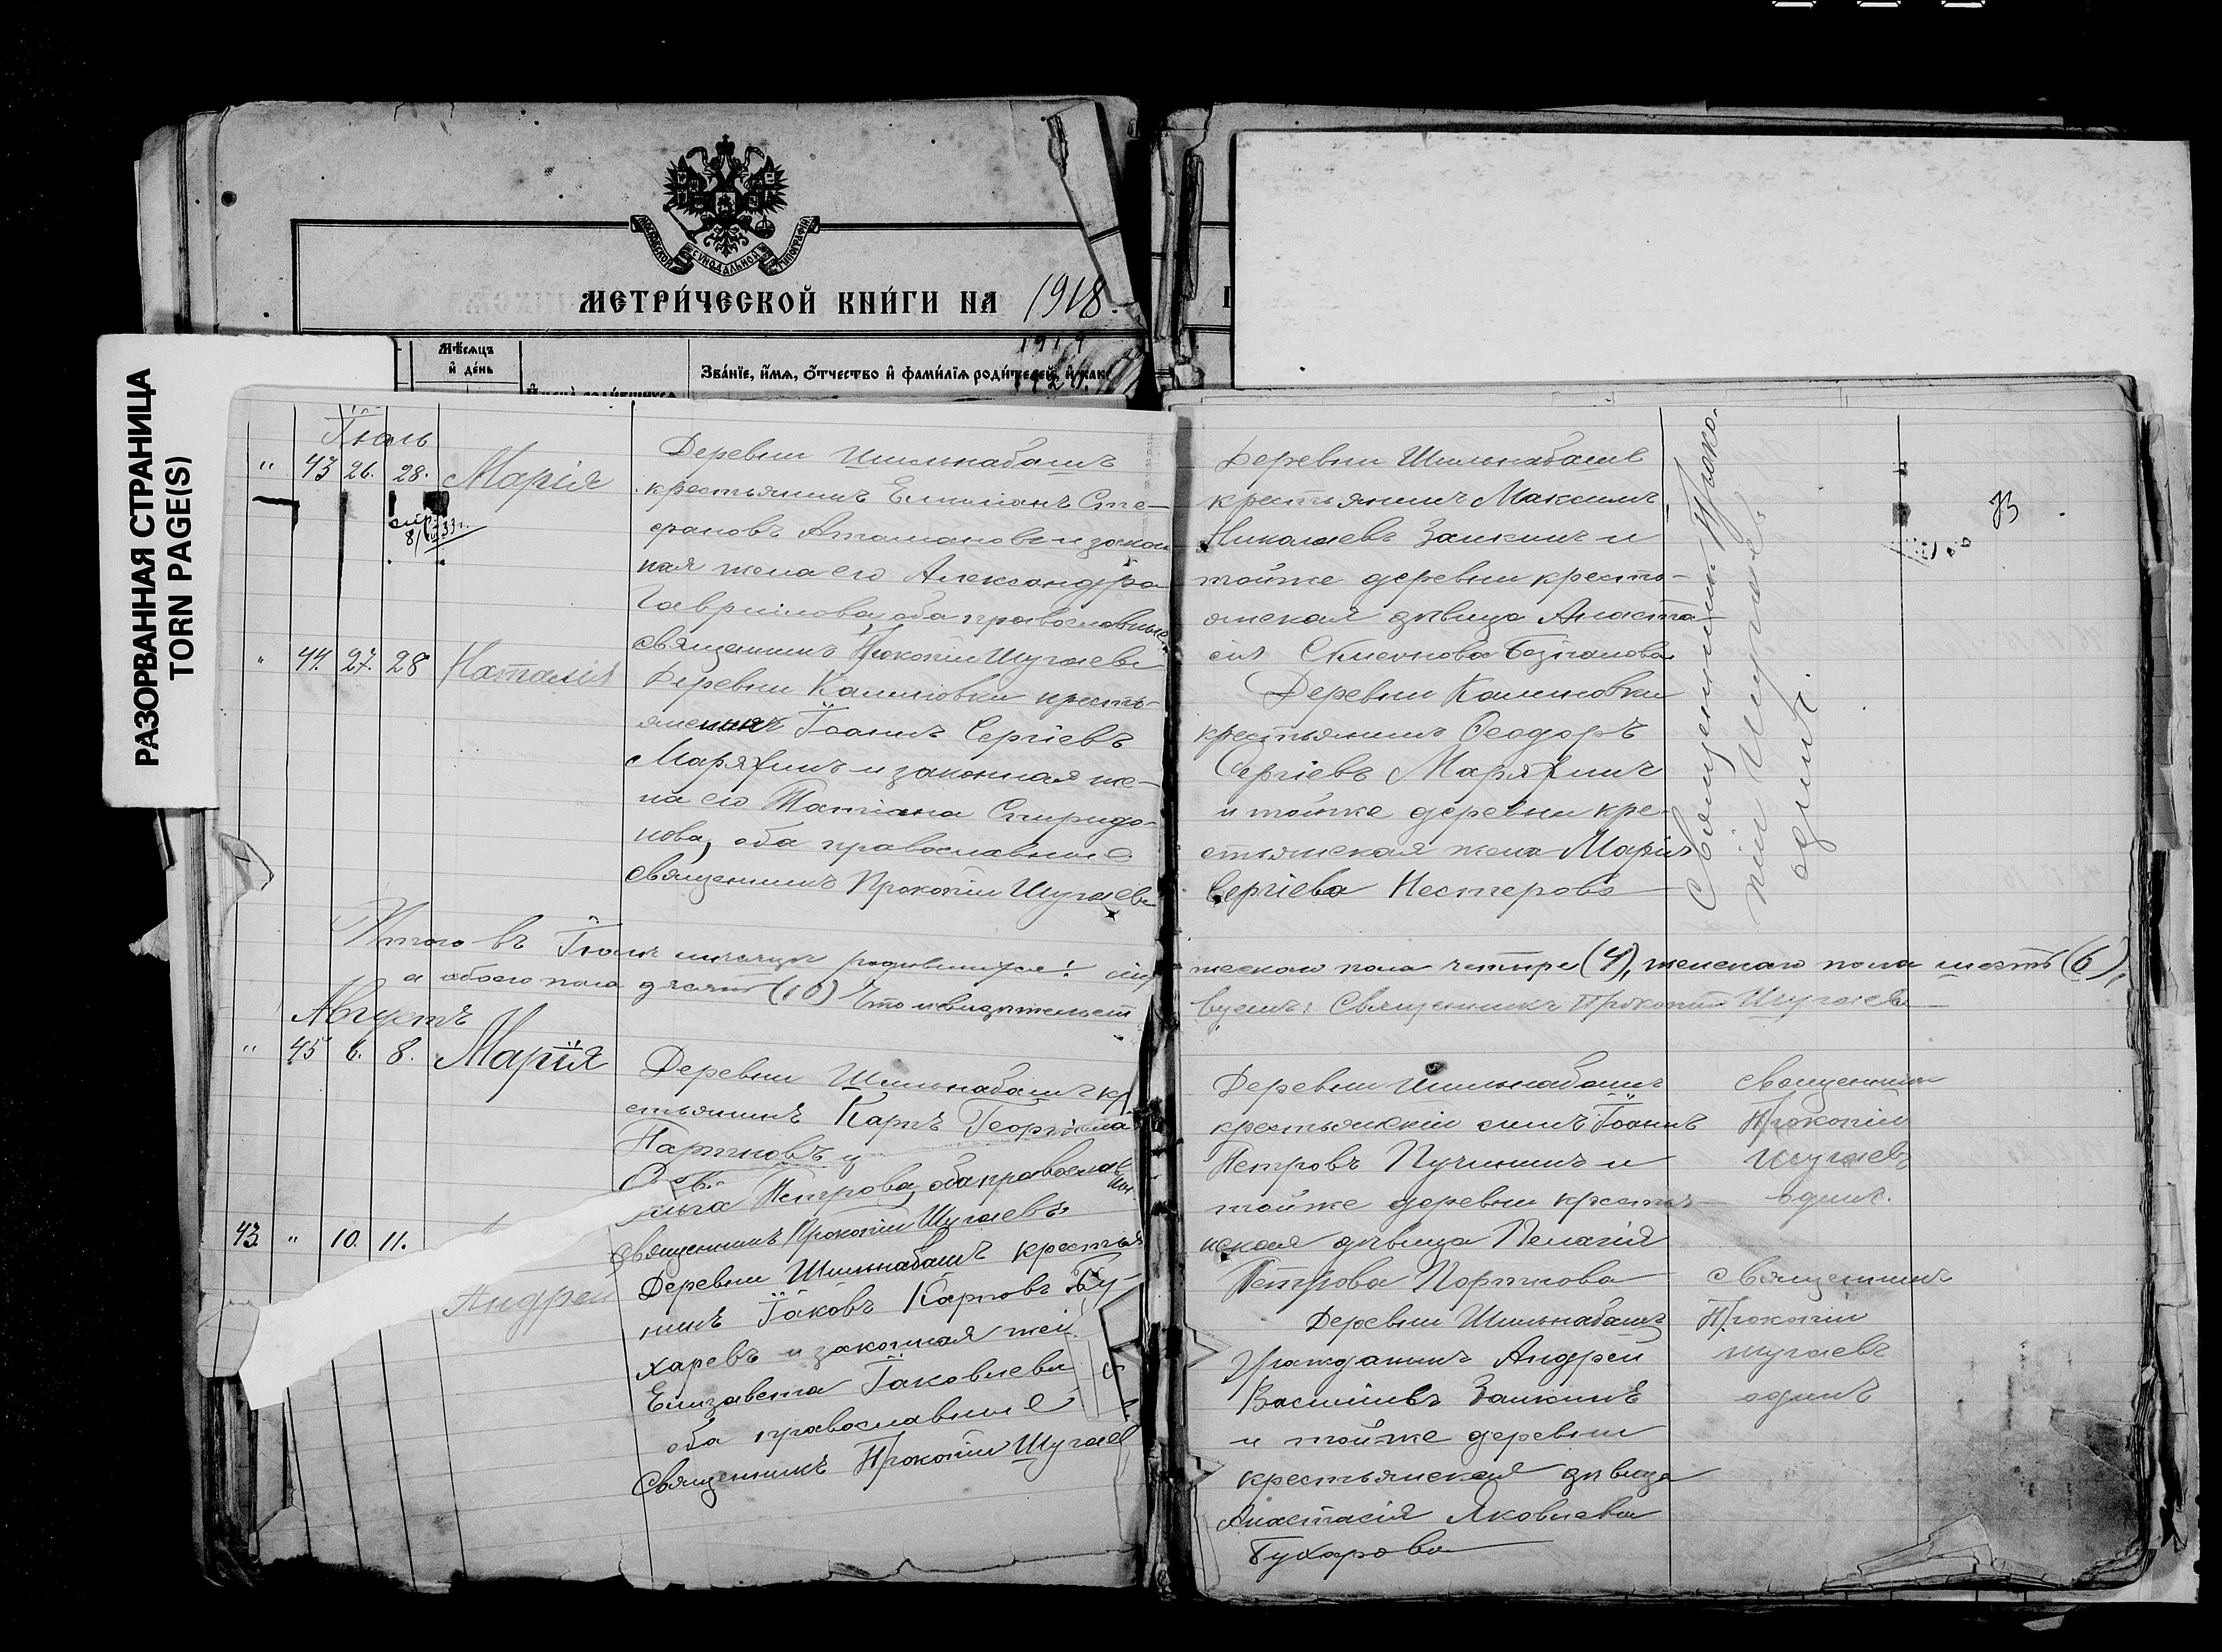 РАЗОРВАННАЯ СТРАНИЦА
TORN PAGE(S)
МОСКОВСКОЙ СѴНОДАЛЬНОЙ ТИПОГРАФІИ
МЕТРИ́ЧЕСКОЙ КНИ́ГИ НА 1918.
Мѣсяцъ и день
Зва́нїе, и҆́мѧ, ѻ҆́тчество и҆ фами́лїѧ роди́телей, и҆ как
Іюль
" 43 26. 28. Марія
Деревни Шильнабашъ
крестьянинъ Емиліанъ Сте-
фановъ Атамановъ и закон
ная жена его Александра
Гавріилова, оба православные.
священникъ Прокопій Шугаевъ
" 44. 27. 28 Наталія
Деревни Калиновки кресть-
янинъ Іоаннъ Сергіевъ
Марягинъ и законная же-
на его Татіана Спиридо-
нова, оба православные
священникъ Прокопій Шугаевъ
Деревни Шильнабашъ
крестьянинъ Максимъ
Николаевъ Заикинъ и
тойже деревни кресть-
янская дѣвица Анаста-
сія Симеонова
Деревни Калиновки
крестьянинъ Ѳеодоръ
Сергіевъ Марягинъ
и тойже деревни кре-
стьянская жена Марія
Сергіева Нестерова
Священникъ Проко-
пій Шугаевъ
одинъ.
Итого въ Іюлѣ мѣсяцѣ родившихся: муж
жескаго пола четыре (4), женскаго пола шесть (6),
а обоего пола десять (10) Что и свидѣтельст
вуемъ: Священникъ Прокопій Шугаевъ
Августъ
" 45 6. 8. Марія
Деревни Шильнабашъ кр
стьянинъ Карпъ Георгіева
Партновъ и
Ольга Петрова, оба православ
ные.
священникъ Прокопій Шугаевъ
Деревни Шильнабашъ
крестьянскій сынъ Іоаннъ
Петровъ Пучининъ и
тойже деревни кресть-
нская дѣвица Пелагія
Петрова Портнова
священникъ
Прокопій
Шугаевъ
одинъ.
43. " 10. 11. Андрей
Деревни Шильнабашъ крестья
нинъ Іаковъ Карповъ Бу-
харевъ и законная же
Елизавета Іаковлева
оба православные
Священникъ Прокопій Шугаев
Деревни Шильнабашъ
Гражданинъ Андрей
Васильевъ Заикинъ
и тойже деревни
крестьянская дѣвица
Анастасія Яковлева
Бухарова
священникъ
Прокопій
Шугаевъ
одинъ